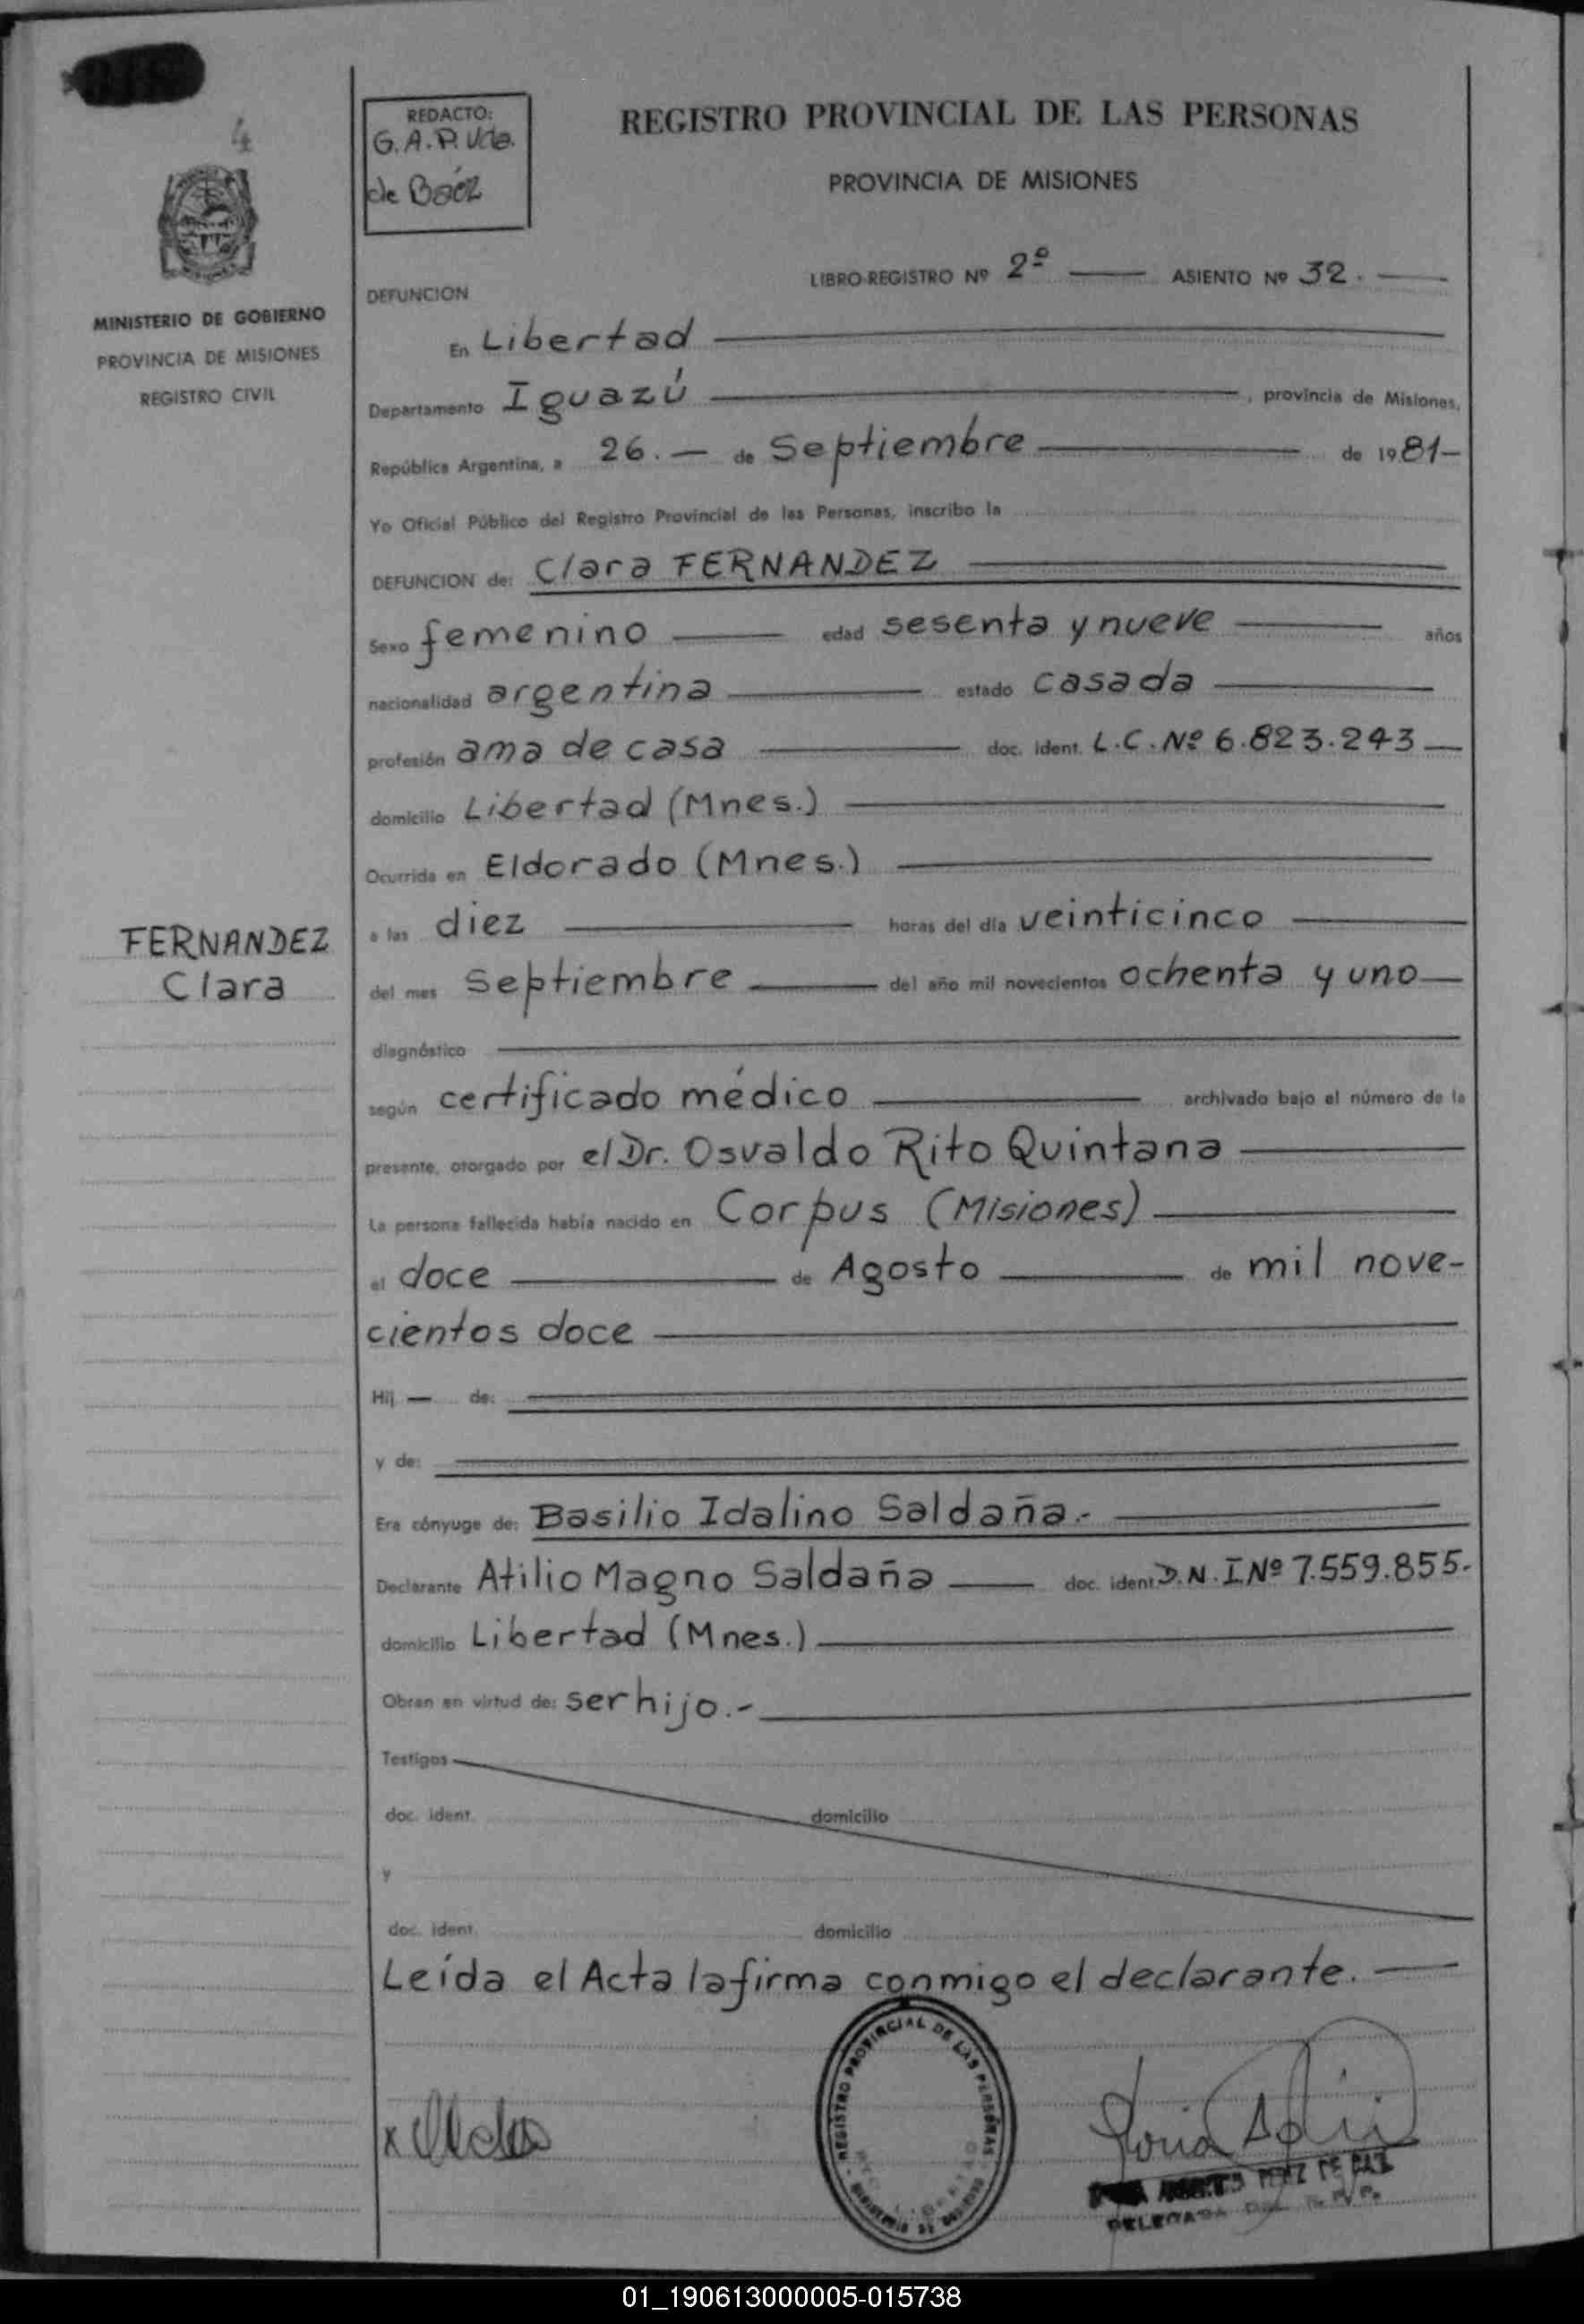 4
REDACTO:
G.A.P. Vda.
de Baéz
REGISTRO PROVINCIAL DE LAS PERSONAS
PROVINCIA DE MISIONES
MINISTERIO DE GOBIERNO
PROVINCIA DE MISIONES
REGISTRO CIVIL
LIBRO-REGISTRO Nº 2º — ASIENTO Nº 32. —
DEFUNCION
En Libertad
Departamento Iguazú , provincia de Misiones,
República Argentina, a 26.— de Septiembre de 1981—
Yo Oficial Público del Registro Provincial de las Personas, inscribo la
DEFUNCION de: Clara FERNANDEZ
Sexo femenino edad sesenta y nueve años
nacionalidad argentina estado casada
profesión ama de casa doc. ident. L.C. Nº 6.823.243
domicilio Libertad (Mnes.)
Ocurrida en Eldorado (Mnes.)
FERNANDEZ
Clara
a las diez horas del día veinticinco
del mes septiembre del año mil novecientos ochenta y uno
diagnóstico
según certificado médico archivado bajo el número de la
presente, otorgado por el Dr. Osvaldo Rito Quintana
La persona fallecida había nacido en Corpus (Misiones)
el doce de Agosto de mil nove-
cientos doce
Hij — de:
y de:
Era cónyuge de: Basilio Idalino Saldaña.-
Declarante Atilio Magno Saldaña doc. ident D.N.I Nº 7.559.855-
domicilio Libertad (Mnes.)
Obran en virtud de: ser hijo.-
Testigos
doc. ident. domicilio
y
doc. ident. domicilio
Leída el Acta la firma conmigo el declarante.
REGISTRO PROVINCIAL DE LAS PERSONAS
x
PEREZ DE BAEZ
DELEGADA DEL R.P.P.
01_190613000005-015738